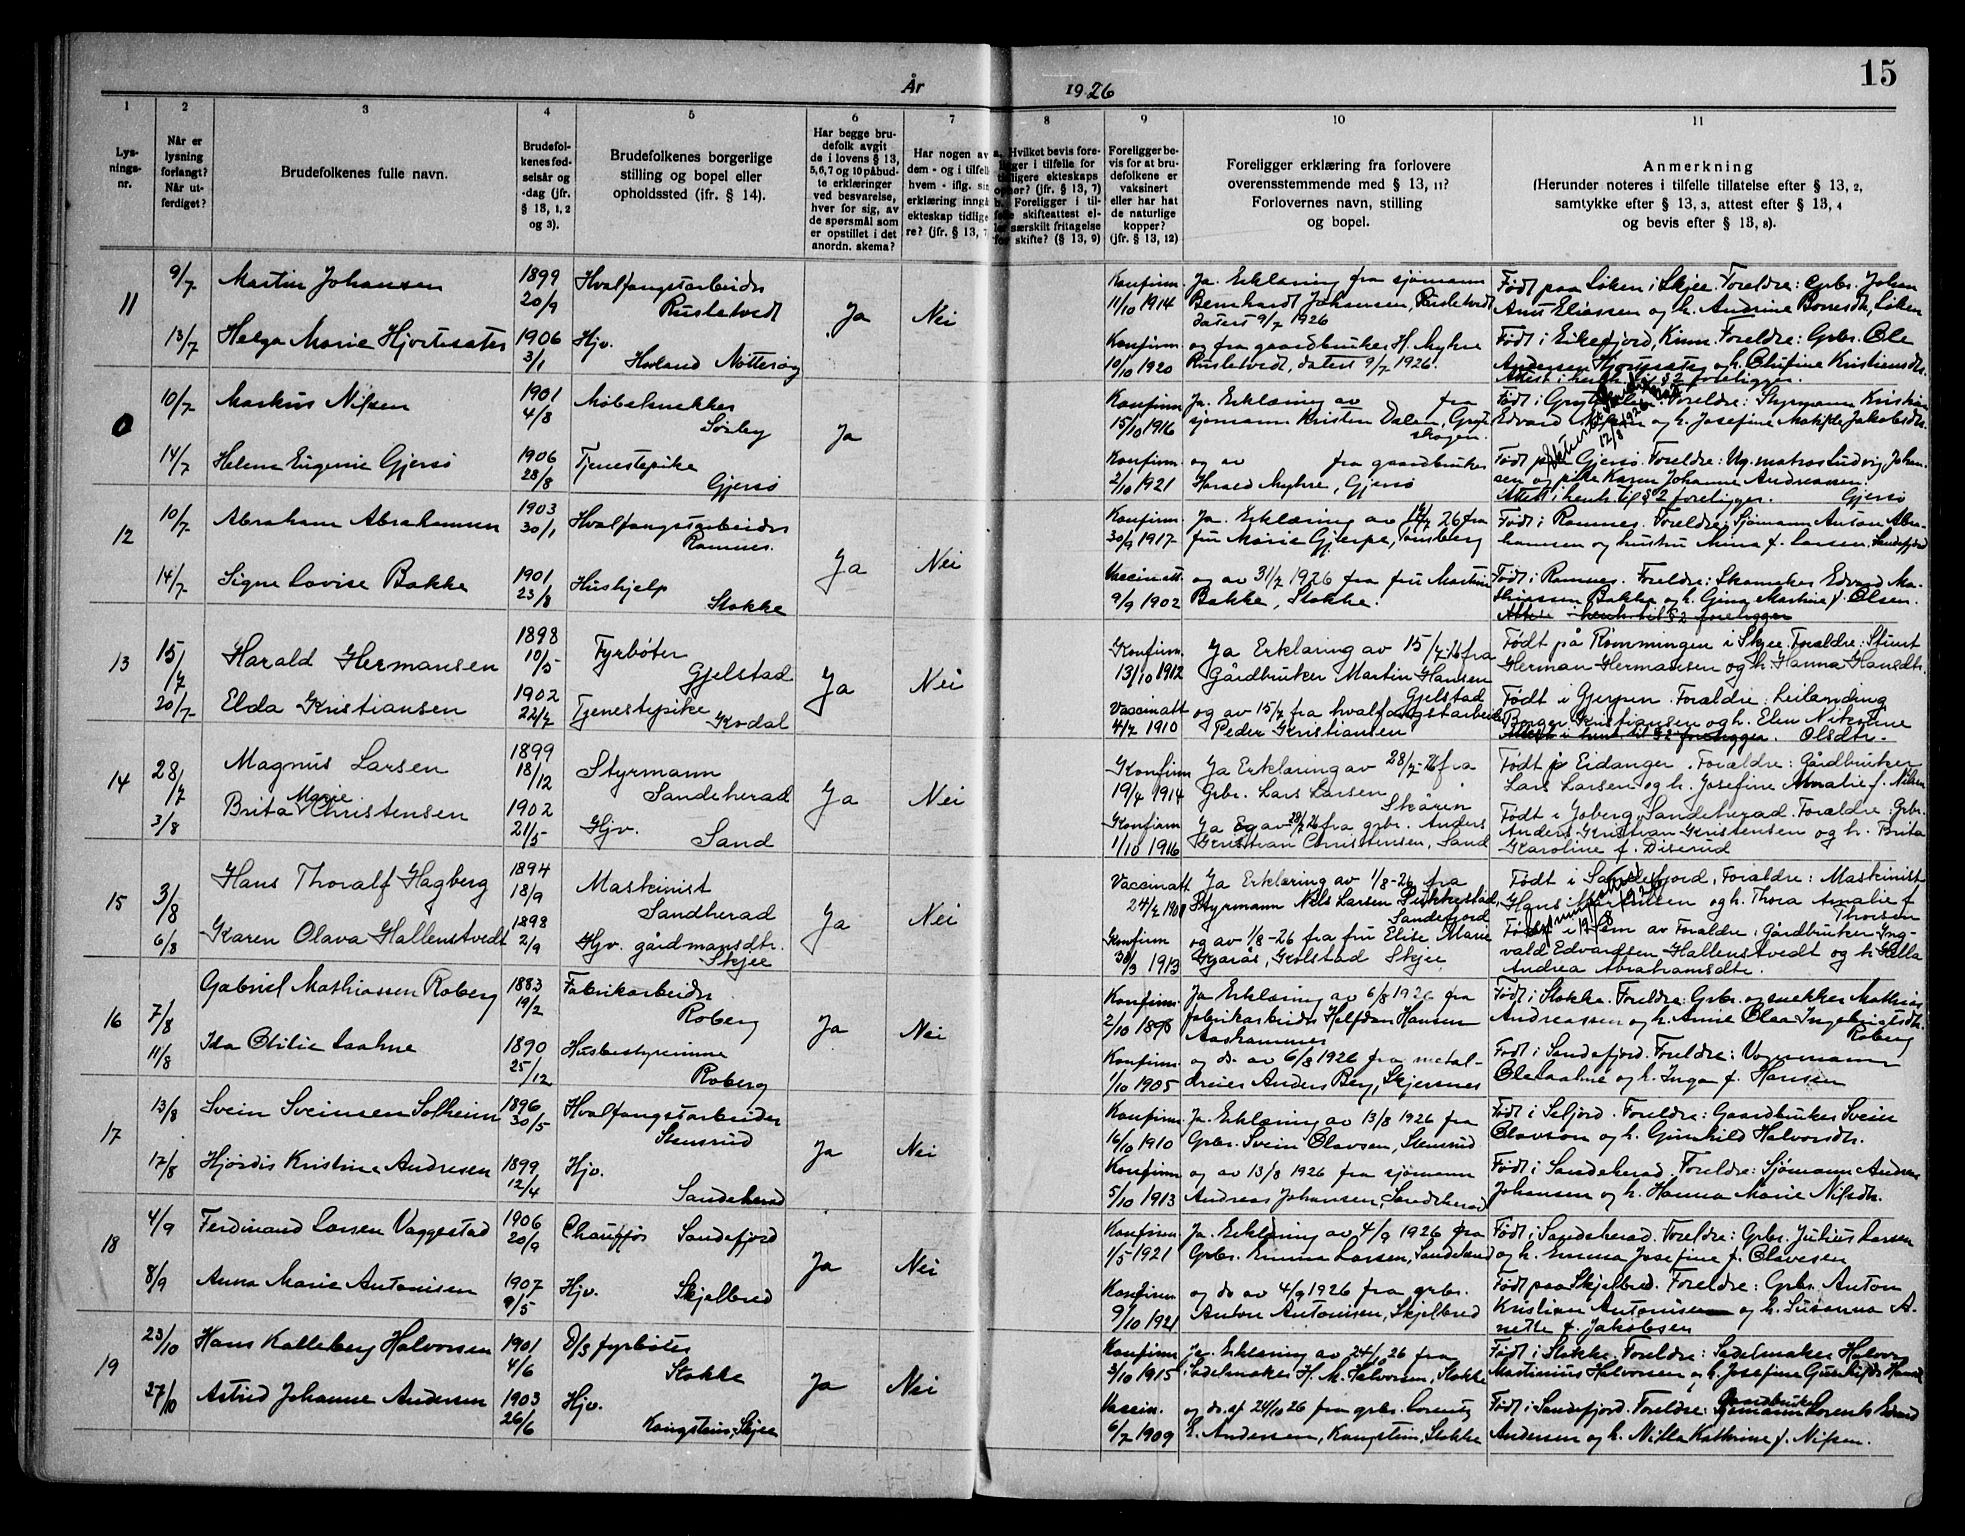 År 1926
15
1 2 3 4 5 6 7 8 9 10 11
Lys-
nings-
nr.
Når er
lysning
forlangt?
Når ut-
ferdiget?
Brudefolkenes fulle navn.
Brudefol-
kenes fød-
selsår og
-dag (jfr.
§ 13, 1, 2
og 3).
Brudefolkenes borgerlige
stilling og bopel eller
opholdssted (jfr. § 14).
Har begge bru-
defolk avgit
de i lovens § 13,
5, 6, 7 og 10 påbud-
te erklæringer
ved besvarelse,
hver for sig, av
de spørsmål som
er opstillet i det
anordn. skema?
Har nogen av
dem - og i tilfelle
hvem - iflg. sin
erklæring inngå
ekteskap tidlige-
re? (jfr. § 13, 7
a. Hvilket bevis fore-
ligger i tilfelle for
tidligere ekteskaps
ophør? (jfr. § 13, 7)
b. Foreligger i til-
felle skifteattest el-
ler særskilt fritagelse
for skifte? (§ 13, 9)
Foreligger be-
vis for at bru-
defolkene er
vaksinert
eller har hat
de naturlige
kopper?
(jfr. § 13, 12)
Foreligger erklæring fra forlovere
overensstemmende med § 13, 11?
Forlovernes navn, stilling
og bopel.
Anmerkning
(Herunder noteres i tilfelle tillatelse efter § 13, 2,
samtykke efter § 13, 3, attest efter § 13, 4
og bevis efter § 13, 8).
11 9/7 Martin Johansen 1899 20/9 Hvalfangstarbeider Rusletvedt Ja Nei
Konfirm. 11/10 1914 Ja. Erklæring fra sjømann
Bernhardt Johansen, Rusletvedt
datert 9/7 1926
Født paa Løken i Skjee. Foreldre: Grbr. Johan
Anus Eliassen og h. Andrine Borresdtr., Løken
13/7 Helga Marie Hjortesæter 1906 3/1 Hjv. Hovland Nøtterøy
Konfirm. 10/10 1920 og fra gaardbruker H. Myhre
Rusletvedt, datert 9/7 1926.
Født i Eikefjord, Kinn. Foreldre: Grbr. Ole
Andersen Hjortesæter og h. Olufine Kristiansdtr.
Attest i henh. til § 2 foreligger.
0 10/7 Markus Nilsen 1901 4/8 Møbelsnekker Sørby Ja
Konfirm. 15/10 1916 Ja. Erklæring av fra
sjømann Kristen Dalen, Grytskogen.
Foreldre: Styrmann Kristian
Edvard Nilsen og h. Josefine Matilde Jakobsdtr.
12/8 1926
14/7 Helene Eugenie Gjersø 1906 28/8 Tjenestepike Gjersø
Konfirm. 2/10 1921 og av fra gaardbruker
Harald Myhre, Gjersø
Født paa Gjersø. Foreldre: Ug. matros Ludvig Johan-
sen og pike Karen Johanne Andreassen,
Attest i henh. til § 2 foreligger. Gjersø
12 10/7 Abraham Abrahamsen 1903 30/1 Hvalfangstarbeider Ramnes. Ja Nei
Konfirm. 30/9 1917 Ja. Erklæring av 26 fra
fru Marie Gjerpe, Tønsberg
Født i Ramnes. Foreldre: Sjømann Anton Abra-
hamsen og hustru Mina f. Larsen, Sandefjord
14/7 Signe Lovise Bakke 1901 23/8 Hushjelp Stokke
Vaccinatt. 9/9 1902 og av 31/7 1926 fra fru Martine
Bakke, Stokke.
Født i Ramnes. Foreldre: Skomaker Edvard Ma-
thiassen Bakke og h. Gina Martine f. Olsen.
Attest i henh. til § 2 foreligger
13 15/7 Harald Hermansen 1898 10/5 Fyrbøter Gjelstad Ja Nei
Konfirm. 13/10 1912 Ja Erklæring av 15/7-26 fra
Gårdbruker Martin Hansen
Gjelstad
Født på Rømmingen i Skjee. Foreldre: Stuert
Herman Hermansen og h. Hanna Hansdtr.
20/7 Elda Kristiansen 1902 22/7 Tjenestepike Kodal
Vaccinatt 4/7 1910 og av 15/7 fra hvalfangstarbeider
Peder Kristiansen
Født i Gjerpen. Foreldre: Leilending
Borger Kristiansen og h. Elen Nikoline
Attest i henh. til § 2 foreligger. Olsdtr.
14 28/7 Magnus Larsen 1899 18/12 Styrmann Sandeherad Ja Nei
Konfirm 19/4 1914 Ja Erklæring av 28/7-26 fra
Grbr. Lars Larsen
Skårin
Født p Eidanger. Foreldre: Gårdbruker
Lars Larsen og h. Josefine Amalie f. Nilsen
3/8 Brita Marie Christensen 1902 21/5 Hjv. Sand
Konfirm. 1/10 1916 Ja og av 28/7 26 fra grbr. Anders
Kristian Christensen, Sand
Født i Joberg, Sandeherad. Foreldre: Grbr.
Anders Kristian Kristensen og h. Brita
Karoline f. Diserud
15 3/8 Hans Thoralf Hagberg 1894 18/9 Maskinist Sandherad Ja Nei
Vaccinatt 24/7 1901 Ja Erklæring av 1/8-26 fra
Styrmann Nils Larsen Pukkestad,
Sandefjord
Født i Sandefjord, Foreldre: Maskinist
Hans og h. Thora Amalie f.
Thorsen
6/8 Karen Olava Hallenstvedt 1898 2/9 Hjv. gårdmansdtr. Skjee
Konfirm 30/3 1913 og av 1/8-26 fra fru Elise Marie
Gjarås, Gjelstad Skjee
Født i Sem av Foreldre: Gårdbruker Ing-
vald Edvardsen Hallenstvedt og h. Helle
Andrea Abrahamsdtr.
16 7/8 Gabriel Mathiassen Roberg 1883 19/2 Fabrikarbeider Roberg Ja Nei
Konfirm. 2/10 1898 Ja Erklæring av 6/8 1926 fra
fabrikarbeider Halfdan Hansen
Aashammer
Født i Stokke. Foreldre: Grbr. og snekker Mathias
Andreassen og h. Anne Olea Ingebrigtsdtr.
Roberg
11/8 Ida Otilie Aaahne 1890 25/12 Husbestyrerinne Roberg
Konfirm. 1/10 1905 og do. av 6/8 1926 fra metal-
dreier Anders Berg, Skjersnes
Født i Sandefjord. Foreldre: Vognmann
og h. Inga f. Hansen
17 13/8 Svein Sveinsen Solheim 1896 30/5 Hvalfangstarbeider Stensrud Ja Nei
Konfirm. 16/10 1910 Ja. Erklæring av 13/8 1926 fra
Grbr. Svein Olavsen, Stensrud
Født i Seljord. Foreldre: Gaardbruker Svein
Olavson og h. Gunhild Halvorsdtr.
17/8 Hjørdis Kristine Andresen 1899 12/4 Hjv. Sandeherad
Konfirm. 5/10 1913 og av 13/8 1926 fra sjømann
Andreas Johansen, Sandeherad
Født i Sandeherad. Foreldre: Sjømann Andreas
Johansen og h. Hanna Marie Nilsdtr.
18 4/9 Ferdinand Larsen Vaggestad 1906 20/9 Chauffør Sandefjord Ja Nei
Konfirm. 1/5 1921 Ja. Erklæring av 4/9 1926 fra
Grbr. Emma Larsen, Sandeherad
Født i Sandeherad. Foreldre: Grbr. Julius Larsen
og h. Emma Josefine f. Olavesen
8/9 Anna Marie Antonisen 1907 9/5 Hjv. Skjelbred
Konfirm. 9/10 1921 og do av 4/9 1926 fra grbr.
Anton Antonisen, Skjelbred
Født paa Skjelbred. Foreldre: Grbr. Anton
Kristian Antonisen og h. Susanna A-
nette f. Jakobsen
19 23/10 Hans Kalleberg Halvorsen 1901 4/6 D/S fyrbøter Stokke Ja Nei
Konfirm. 3/10 1915 Ja. Erklæring av 24/10 26 fra
Sadelmaker H. M. Halvorsen, Stokke
Født i Stokke. Foreldre: Sadelmaker Halvor
Martinius Halvorsen og h. Josefine
27/10 Astrid Johanne Andersen 1903 26/6 Hjv. Kongstein, Skjee
Vaccin. 6/7 1909 og do. af 24/10 26 fra grbr. Lorentz
E. Andersen, Kongstein, Stokke
Født i Sandefjord. Foreldre: Gaardbruker Lorents Edvard
Andersen og h. Nilla Kathrine f. Nilsen.